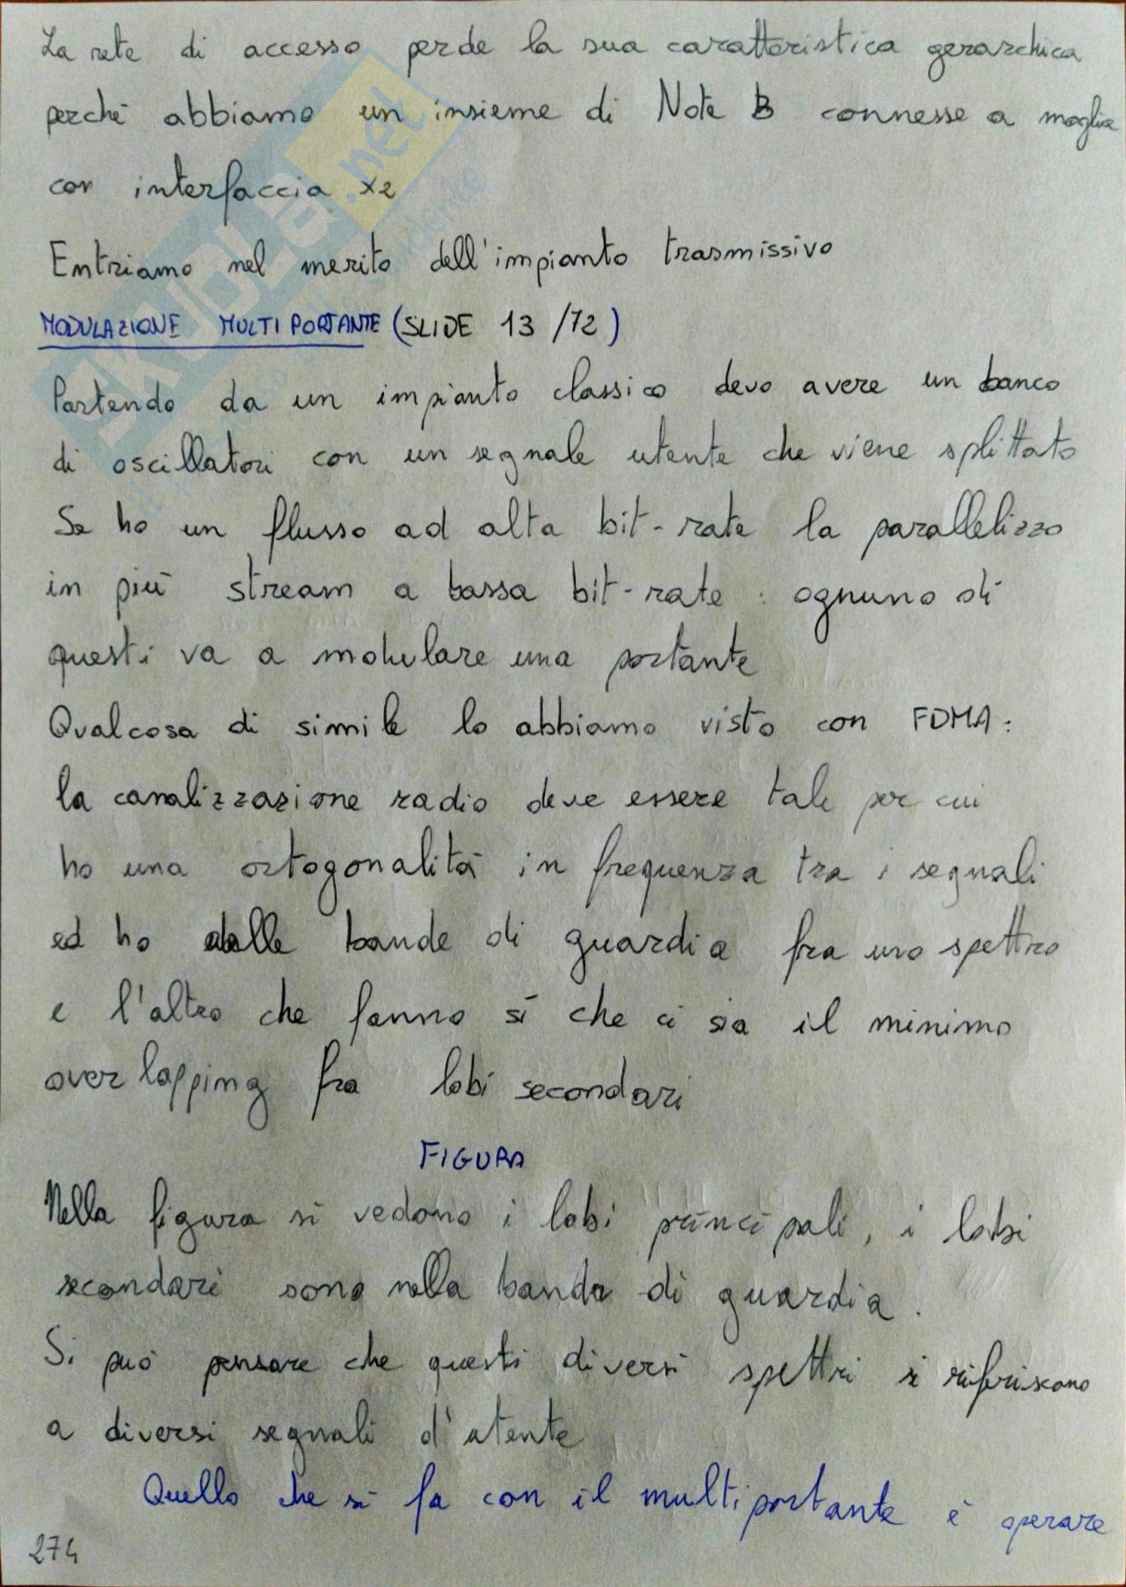 La rete di accesso perde la sua caratteristica gerarchica
perché abbiamo un insieme di Note B connesse a maglia
con interfaccia X2
Entriamo nel merito dell'impianto trasmissivo
MODULAZIONE MULTI PORTANTE (SLIDE 13/72)
Partendo da un impianto classico devo avere un banco
di oscillatori con un segnale utente che viene splittato
Se ho un flusso ad alta bit-rate la parallelizzo
in più stream a bassa bit-rate : ognuno di
questi va a modulare una portante
Qualcosa di simile lo abbiamo visto con FDMA:
la canalizzazione radio deve essere tale per cui
ho una ortogonalità in frequenza tra i segnali
ed ho delle bande di guardia fra uno spettro
e l'altro che fanno sì che ci sia il minimo
overlapping fra lobi secondari
FIGURA
Nella figura si vedono i lobi principali, i lobi
secondari sono nella banda di guardia.
Si può pensare che questi diversi spettri si riferiscono
a diversi segnali d'utente
Quello che si fa con il multiportante è operare
274
SKUOLA.net